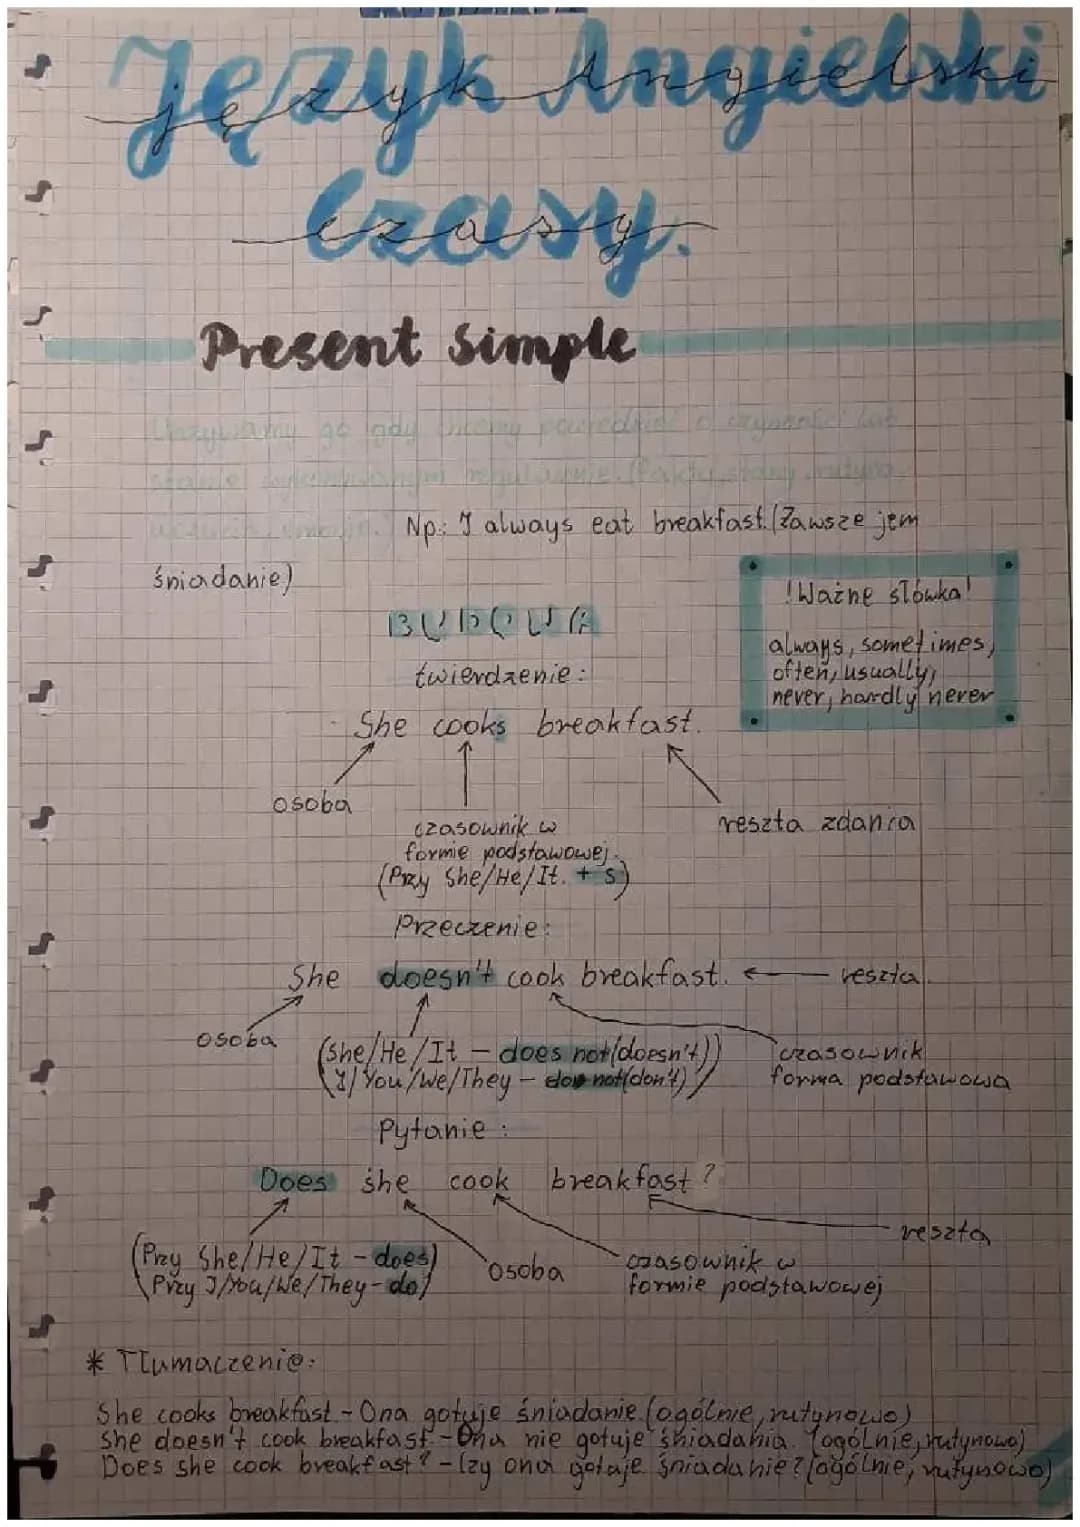 Język Angielski
Czasy.
Present Simple
Używamy go gdy chcemy powiedzieć o czynności lub
stanie wykonywanym regularnie. (fakty, stany, rutyna,
uczucia, emocje.) Np: I always eat breakfast. (Zawsze jem
śniadanie)
!Ważne słówka!
always, sometimes,
often, usually,
never, hardly never
BUDOWA
twierdzenie:
She cooks breakfast.
osoba
czasownik w
formie podstawowej.
(Przy She/He/It. + s)
reszta zdania
Przeczenie:
She doesn't cook breakfast. reszta
osoba
(She/He/It - does not(doesn't))
(I/You/We/They - do not(don't))
czasownik
forma podstawowa
Pytanie:
Does she cook breakfast?
(Przy She/He/It - does)
(Przy I/You/We/They - do)
osoba
czasownik w
formie podstawowej
reszta
* Tłumaczenie:
She cooks breakfast - Ona gotuje śniadanie (ogólnie, rutynowo)
She doesn't cook breakfast - Ona nie gotuje śniadania (ogólnie, rutynowo)
Does she cook breakfast? - Czy ona gotuje śniadanie? (ogólnie, rutynowo)